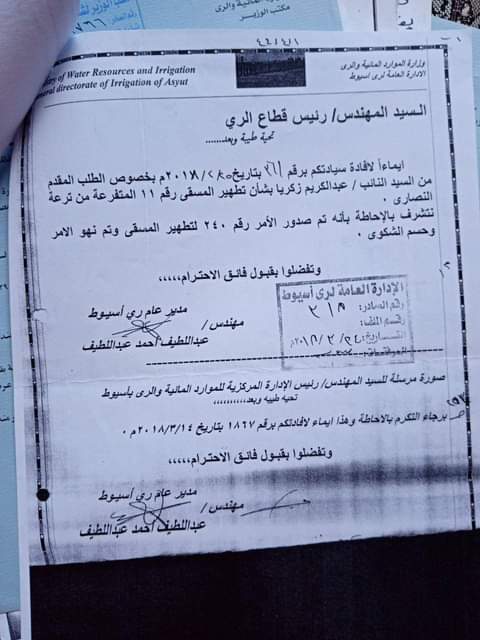 المالية والرى
مكتب الوزير
وزارة الموارد المائية والرى
الادارة العامة لرى أسيوط
of Water Resources and Irrigation
directorate of Irrigation of Asyut
السيد المهندس/ رئيس قطاع الري
تحية طيبة وبعد......
ايماءاً لافادة سيادتكم برقم بتاريخ م بخصوص الطلب المقدم
من السيد النائب / عبدالكريم زكريا بشأن تطهير المسقى رقم ١١ المتفرعة من ترعة
النصارى .
نتشرف بالإحاطة بأنه تم صدور الأمر رقم ٢٤٠ لتطهير المسقى وتم نهو الامر
وحسم الشكوى .
وتفضلوا بقبول فائق الاحترام،،،،،
مدير عام ري أسيوط
مهندس/
عبداللطيف أحمد عبداللطيف
الإدارة العامة لرى أسيوط
رقم الصادر:
التاريخ:
صورة مرسلة للسيد المهندس/ رئيس الإدارة المركزية للموارد المائية والرى بأسيوط
تحيه طيبه وبعد،،،،،،،،،،
برجاء التكرم بالاحاطة وهذا ايماءً لأفادتكم برقم ١٨٦٧ بتاريخ ٢٠١٨/٣/١٤م .
وتفضلوا بقبول فائق الاحترام،،،،،
مدير عام ري أسيوط
مهندس/
عبداللطيف أحمد عبداللطيف